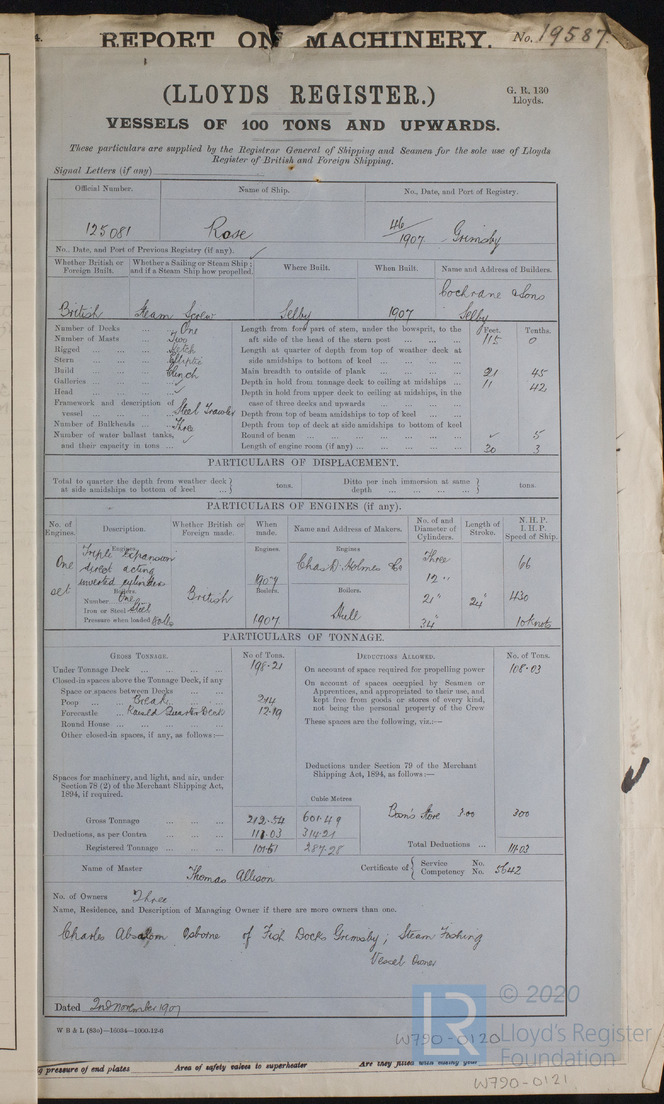 REPORT ON MACHINERY. No. 19587.
(LLOYDS REGISTER.)
G. R. 130
Lloyds.
VESSELS OF 100 TONS AND UPWARDS.
These particulars are supplied by the Registrar General of Shipping and Seamen for the sole use of Lloyds
Register of British and Foreign Shipping.
Signal Letters (if any)
Official Number. Name of Ship. No., Date, and Port of Registry.
125081 Rose 46/1907 Grimsby
No., Date, and Port of Previous Registry (if any).
Whether British or Foreign Built. Whether a Sailing or Steam Ship; and if a Steam Ship how propelled. Where Built. When Built. Name and Address of Builders.
British Steam Screw Selby 1907 Cochrane & Sons Selby
Number of Decks ... One
Number of Masts ... Two
Rigged ... Ketch
Stern ... Elliptic
Build ... Clinch
Galleries ... ✓
Head ... ✓
Framework and description of vessel ... Steel Trawler
Number of Bulkheads ... Three
Number of water ballast tanks, and their capacity in tons ... ✓
Feet. Tenths.
Length from fore part of stem, under the bowsprit, to the aft side of the head of the stern post ... 115 0
Length at quarter of depth from top of weather deck at side amidships to bottom of keel ...
Main breadth to outside of plank ... 21 45
Depth in hold from tonnage deck to ceiling at midships ... 11 42
Depth in hold from upper deck to ceiling at midships, in the case of three decks and upwards ...
Depth from top of beam amidships to top of keel ...
Depth from top of deck at side amidships to bottom of keel
Round of beam ... ✓ 5
Length of engine room (if any) ... 30 3
PARTICULARS OF DISPLACEMENT.
Total to quarter the depth from weather deck at side amidships to bottom of keel ... tons.
Ditto per inch immersion at same depth ... tons.
PARTICULARS OF ENGINES (if any).
No. of Engines. Description. Whether British or Foreign made. When made. Name and Address of Makers. No. of and Diameter of Cylinders. Length of Stroke. N.H.P. I.H.P. Speed of Ship.
Engines. Engines. Engines
One set Triple Expansion direct acting inverted cylinders British 1907 Chas D. Holmes & Co Three 12" 66
Boilers. Boilers. Boilers.
Number One 21" 24" 430
Iron or Steel Steel
Pressure when loaded 1907 Hull 34" 10 knots
PARTICULARS OF TONNAGE.
GROSS TONNAGE. No of Tons. DEDUCTIONS ALLOWED. No. of Tons.
Under Tonnage Deck ... 198.21
Closed-in spaces above the Tonnage Deck, if any
Space or spaces between Decks ...
Poop ... Break 2.14
Forecastle ... Raised Quarter Deck 12.19
Round House ...
Other closed-in spaces, if any, as follows:—
Spaces for machinery, and light, and air, under
Section 78 (2) of the Merchant Shipping Act,
1894, if required.
Cubic Metres
Gross Tonnage ... 212.54 601.49
Deductions, as per Contra ... 111.03 314.21
Registered Tonnage ... 101.51 287.28
On account of space required for propelling power 108.03
On account of spaces occupied by Seamen or
Apprentices, and appropriated to their use, and
kept free from goods or stores of every kind,
not being the personal property of the Crew
These spaces are the following, viz.:—
Deductions under Section 79 of the Merchant
Shipping Act, 1894, as follows:—
Bosn's Store 3.00 300
Total Deductions ... 111.03
Name of Master Thomas Allison Certificate of Service No. Competency No. 5642
No. of Owners Three
Name, Residence, and Description of Managing Owner if there are more owners than one.
Charles Absalom Osborne of Fish Docks Grimsby; Steam Fishing
Vessel Owner
Dated 2nd November 1907
W B & L (83o)—10034—1000-12-6
W790-0120
LR
© 2020
Lloyd's Register
Foundation
pressure of end plates Area of safety valves to superheater Are they fitted with easing gear
W790-0121